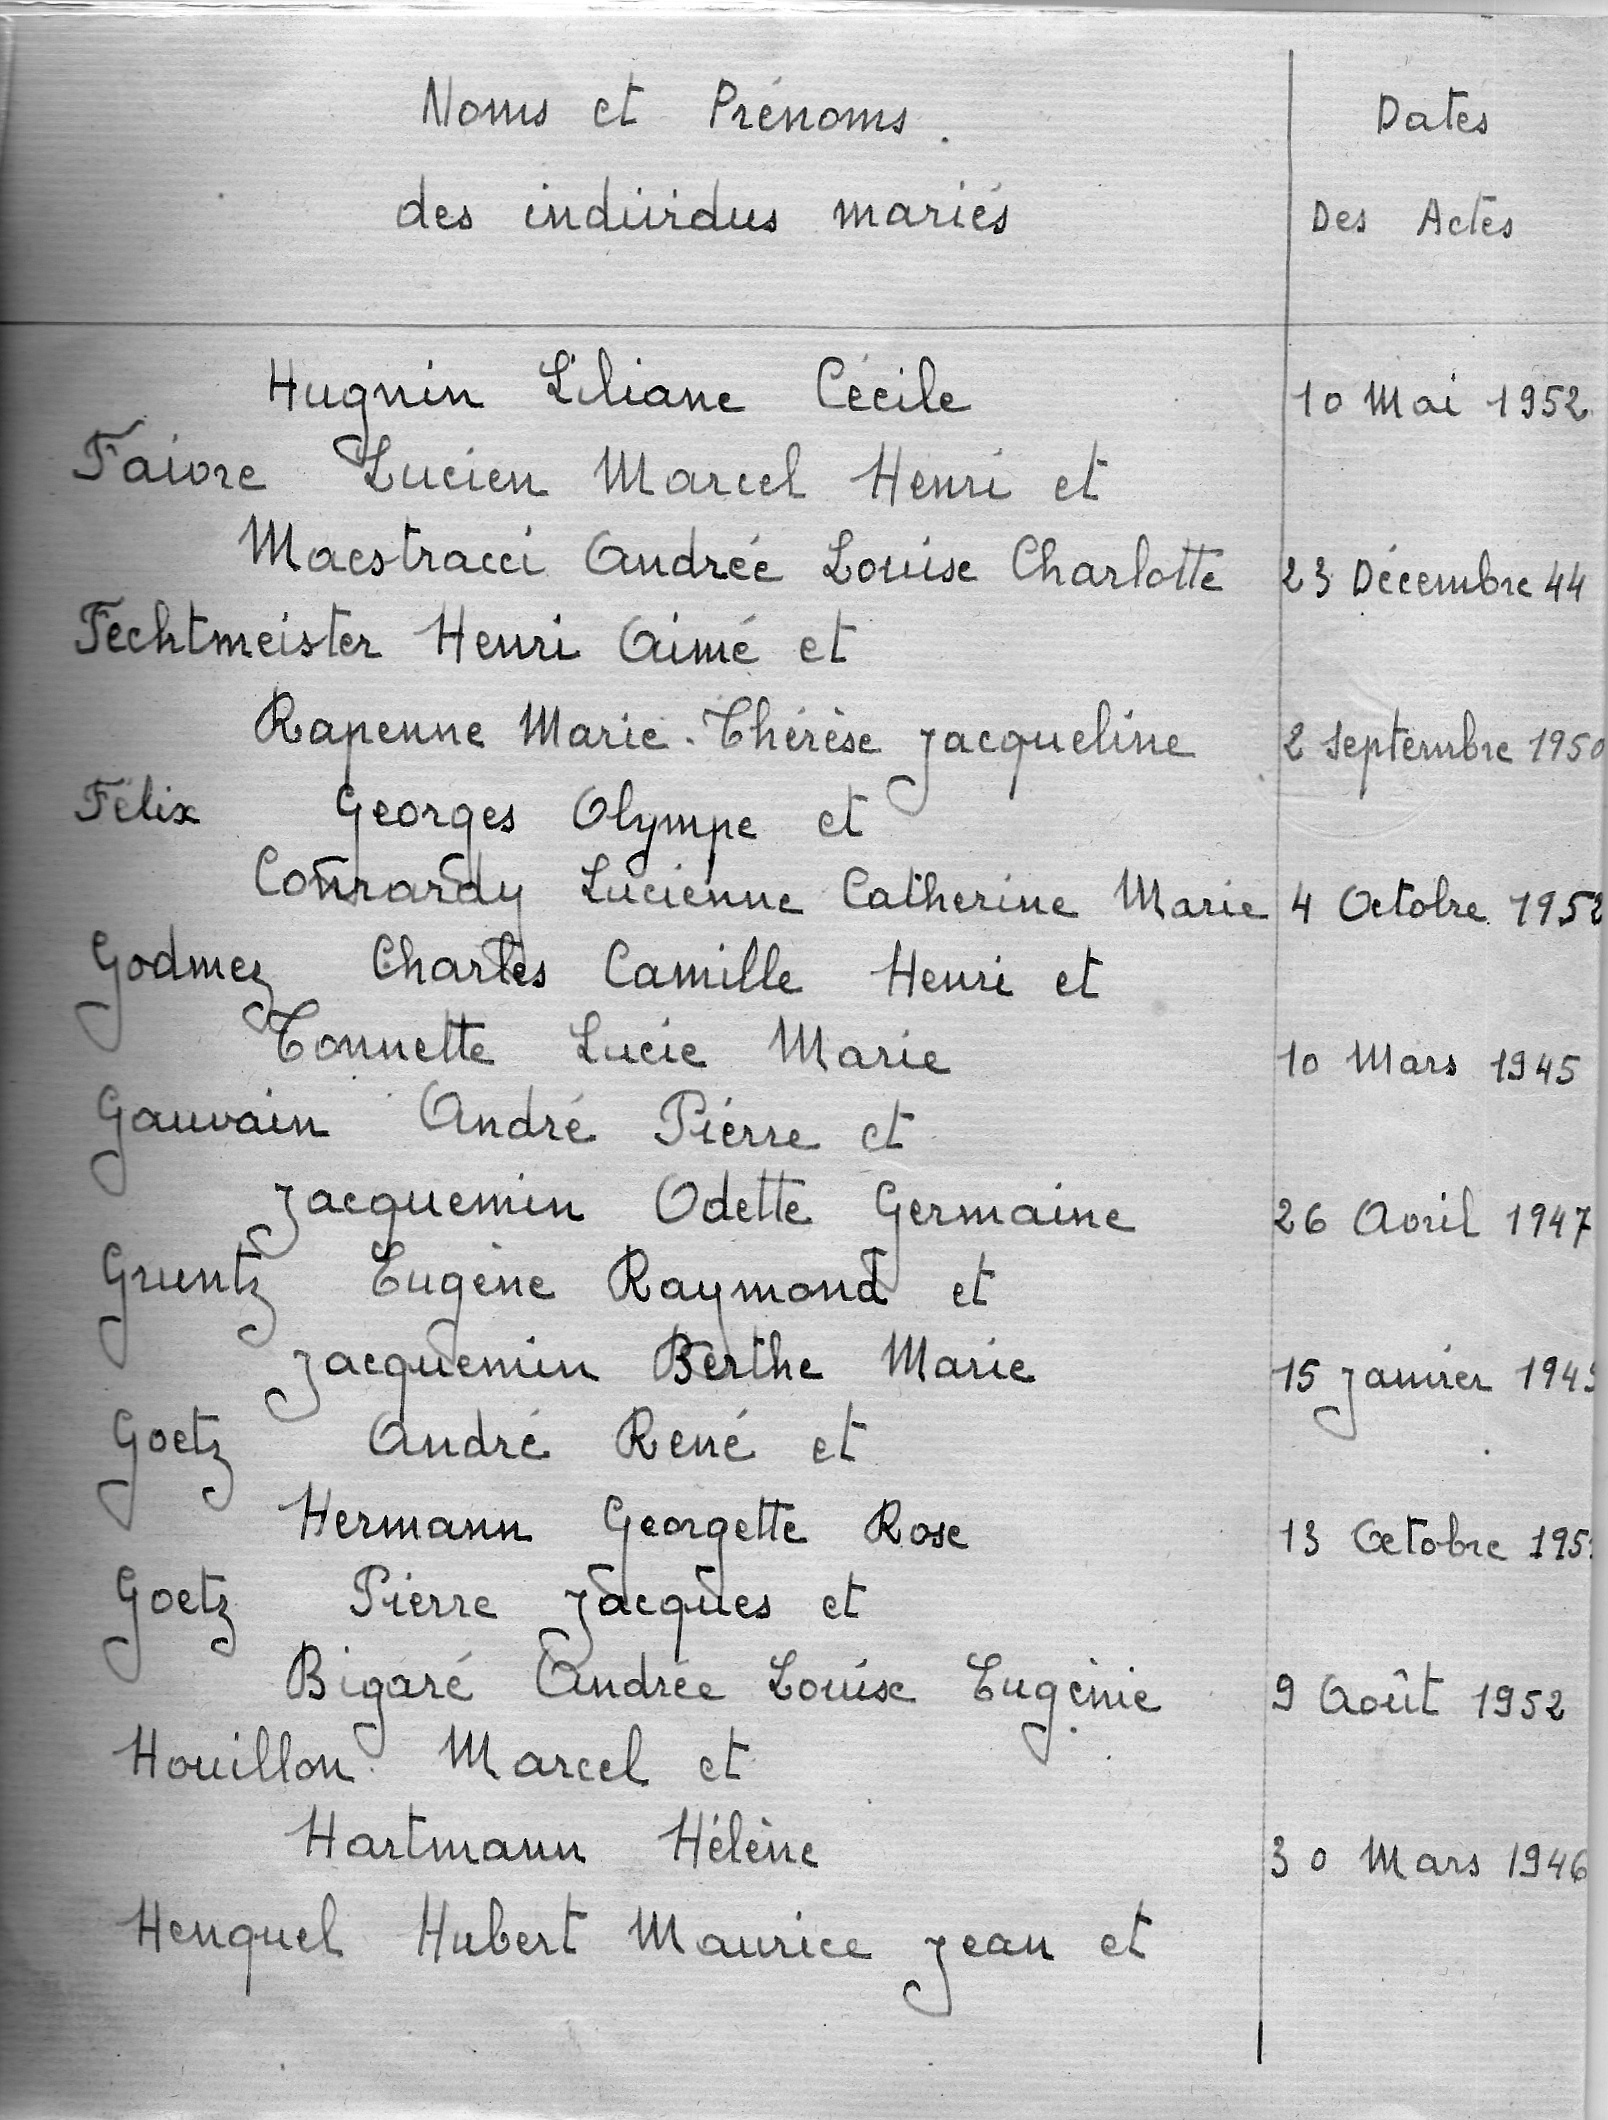 Noms et Prénoms.
Dates
des individus mariés
Des Actes
Hugnin Liliane Cécile 10 Mai 1952
Faivre Lucien Marcel Henri et
Maestracci Andrée Louise Charlotte 23 Décembre 44
Fechtmeister Henri Aimé et
Rapenne Marie-Thérèse Jacqueline 2 Septembre 1950
Félix Georges Olympe et
Conrardy Lucienne Catherine Marie 4 Octobre 1952
Godmez Charles Camille Henri et
Tonnette Lucie Marie 10 Mars 1945
Gauvain André Pierre et
Jacquemin Odette Germaine 26 Avril 1947
Gruntz Eugène Raymond et
Jacquemin Berthe Marie 15 Janvier
Goetz André René et
Hermann Georgette Rose 13 Octobre
Goetz Pierre Jacques et
Bigaré Andrée Louise Eugénie 9 Août 1952
Houillon Marcel et
Hartmann Hélène 30 Mars 1946
Henquel Hubert Maurice Jean et